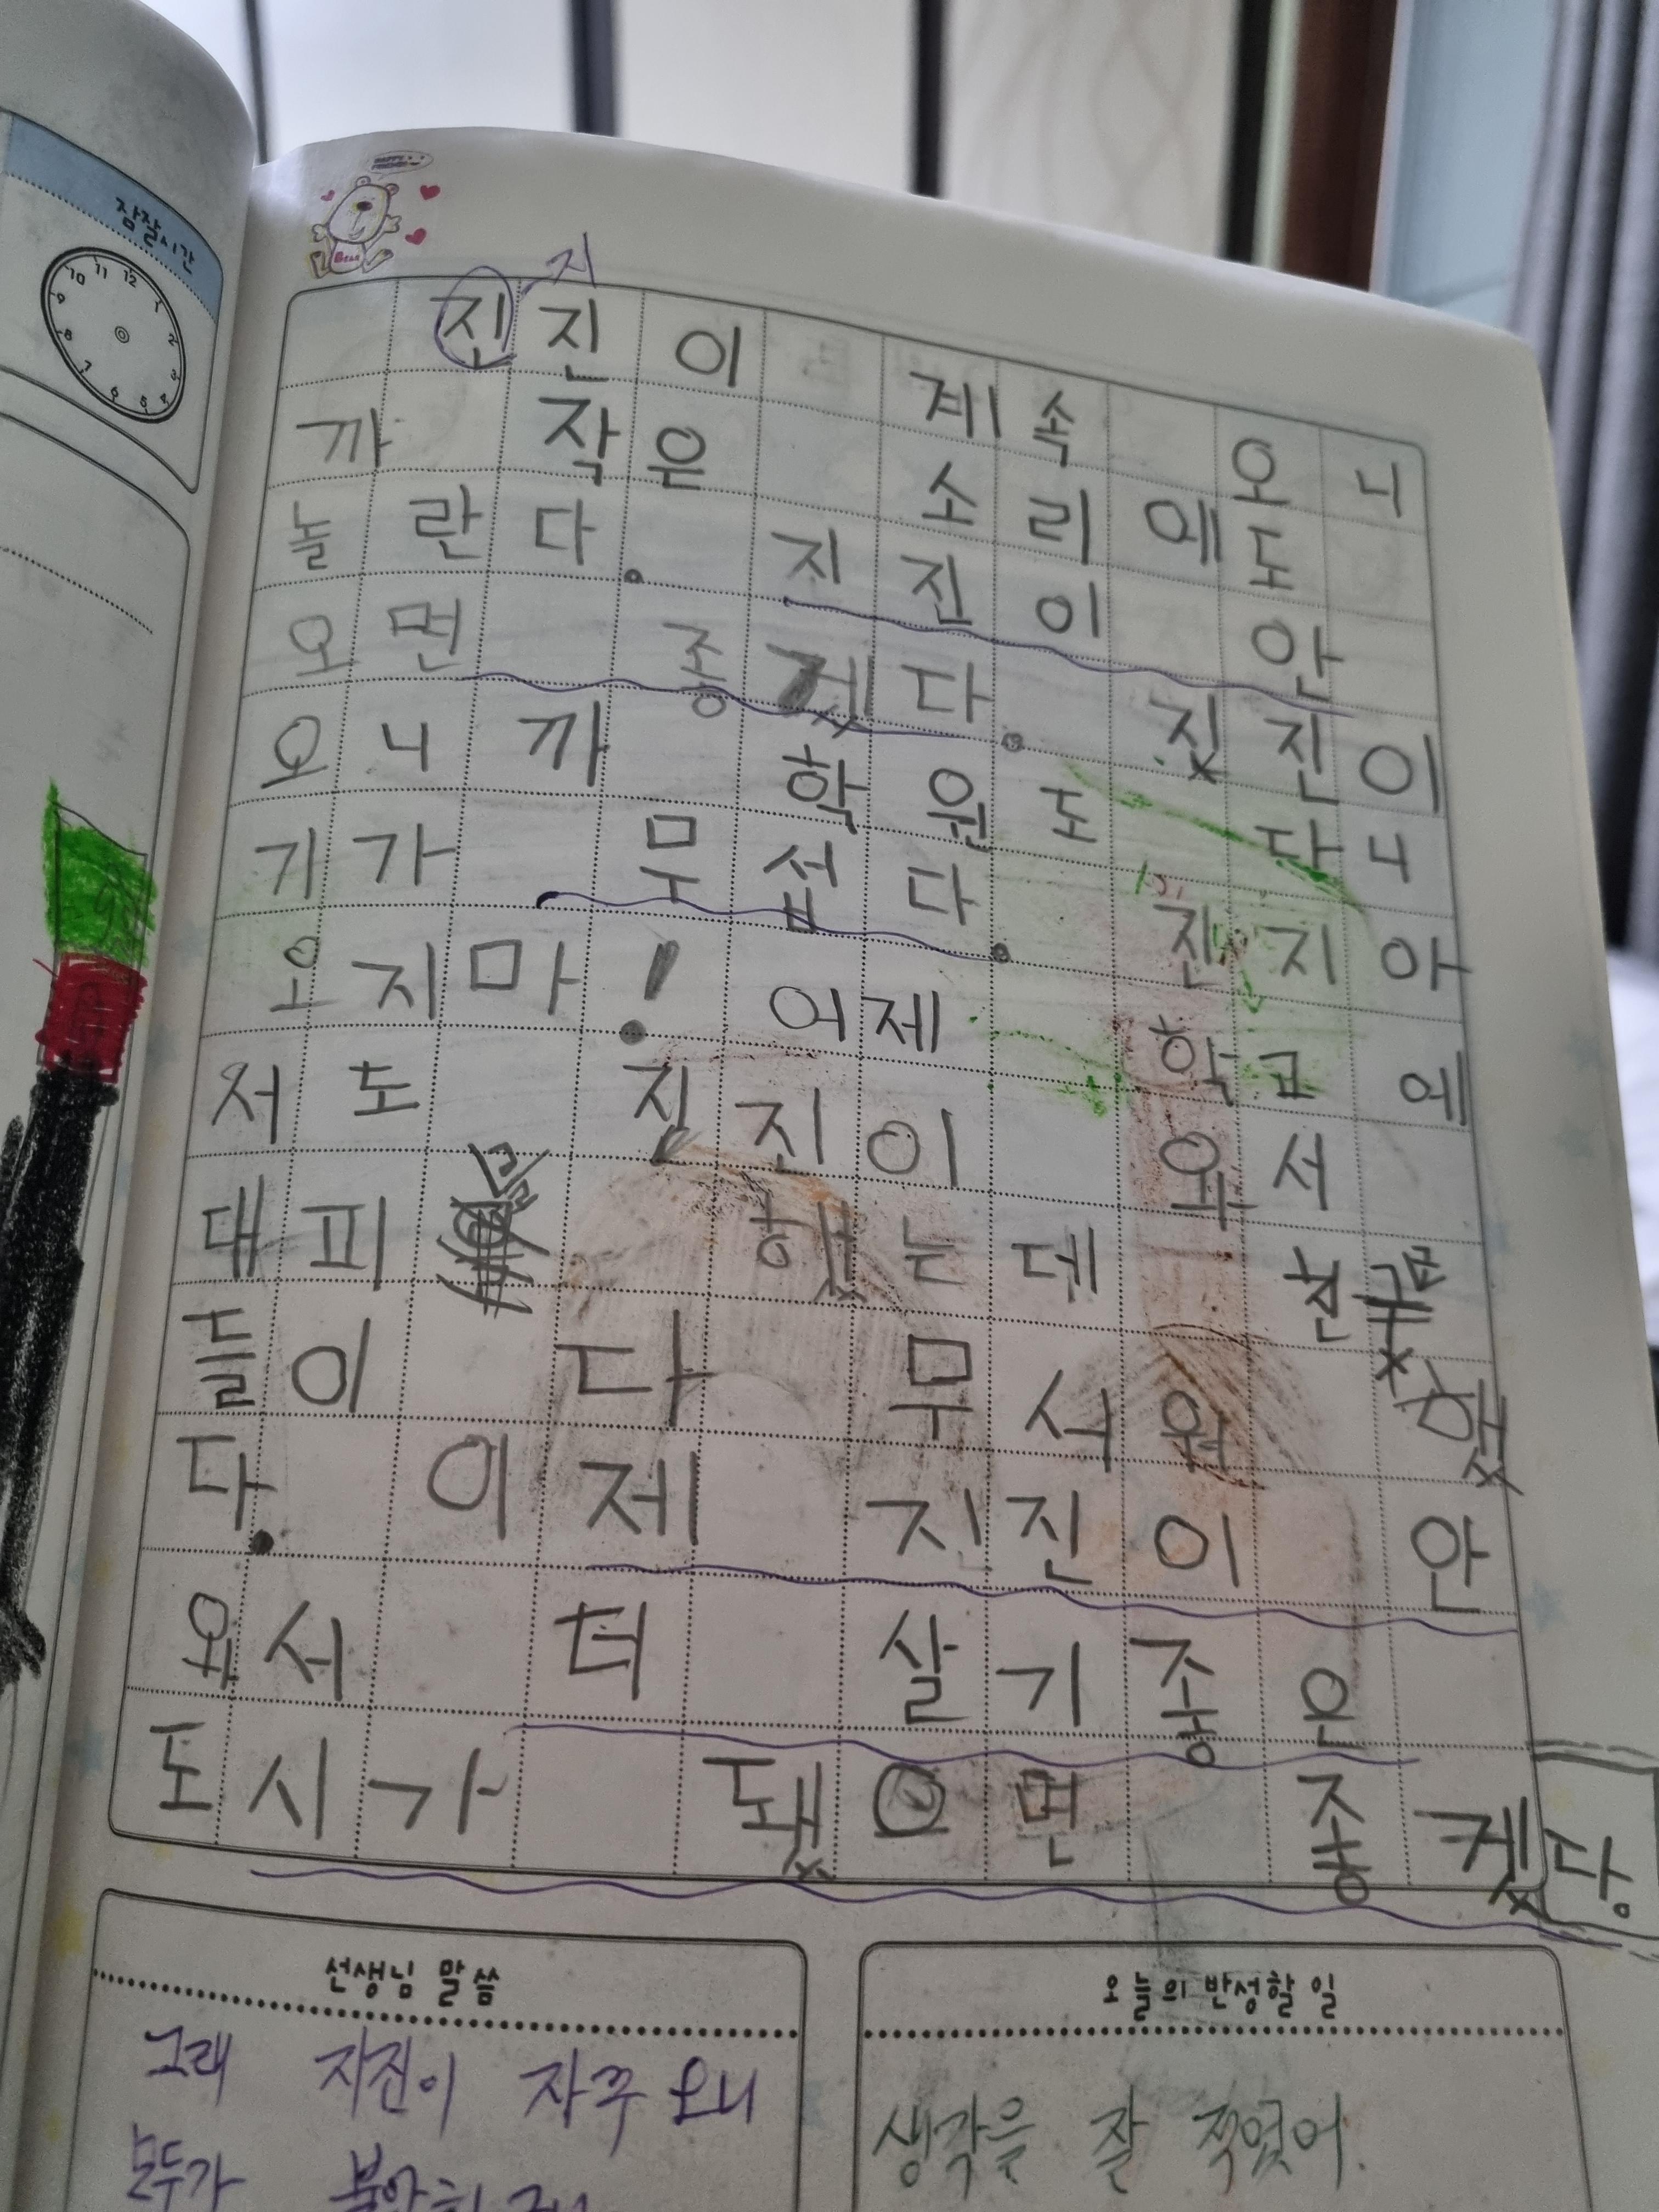 잠잘시간
10 11 12 1
9 2
8 3
7 6 5 4
Bear
지
진진이 계속 오니
까 작은 소리에도
놀란다. 지진이 안
오면 좋겠다. 짖진이
오니까 학원도 다니
기가 무섭다. 진지아
오지마! 어제 학교에
서도 짇진이 와서
대피 했는데 친구
들이 다 무서워 했
다. 이제 지진이 안
와서 더 살기좋은
도시가 됐으면 좋겠다.
선생님 말씀
오늘의 반성할 일
그래 지진이 자주 오니
모두가
생각을 잘 적었어.